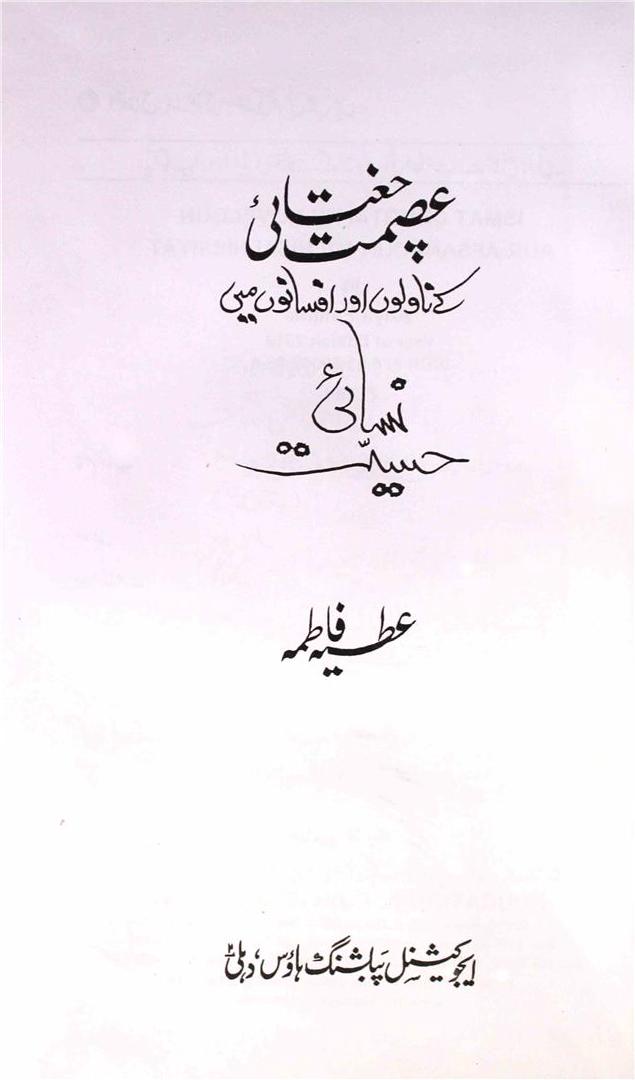 عصمت چغتائی
کے ناولوں اور افسانوں میں
نسائی
حسیّت
عطیہ فاطمہ
ایجوکیشنل پبلشنگ ہاؤس، دہلی